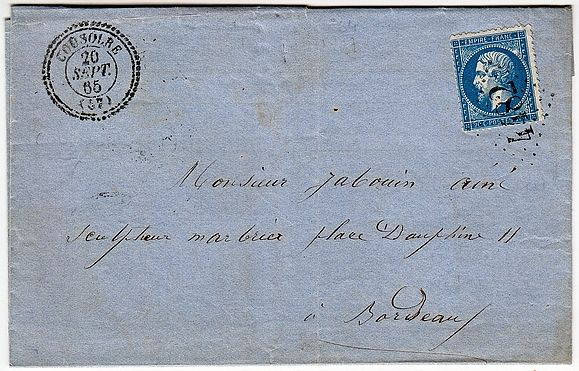 COUSOLRE
20
SEPT.
65
(57)
EMPIRE FRANC
Monsieur Jabouin ainé
sculpteur marbrier place Dauphine 11
à Bordeaux